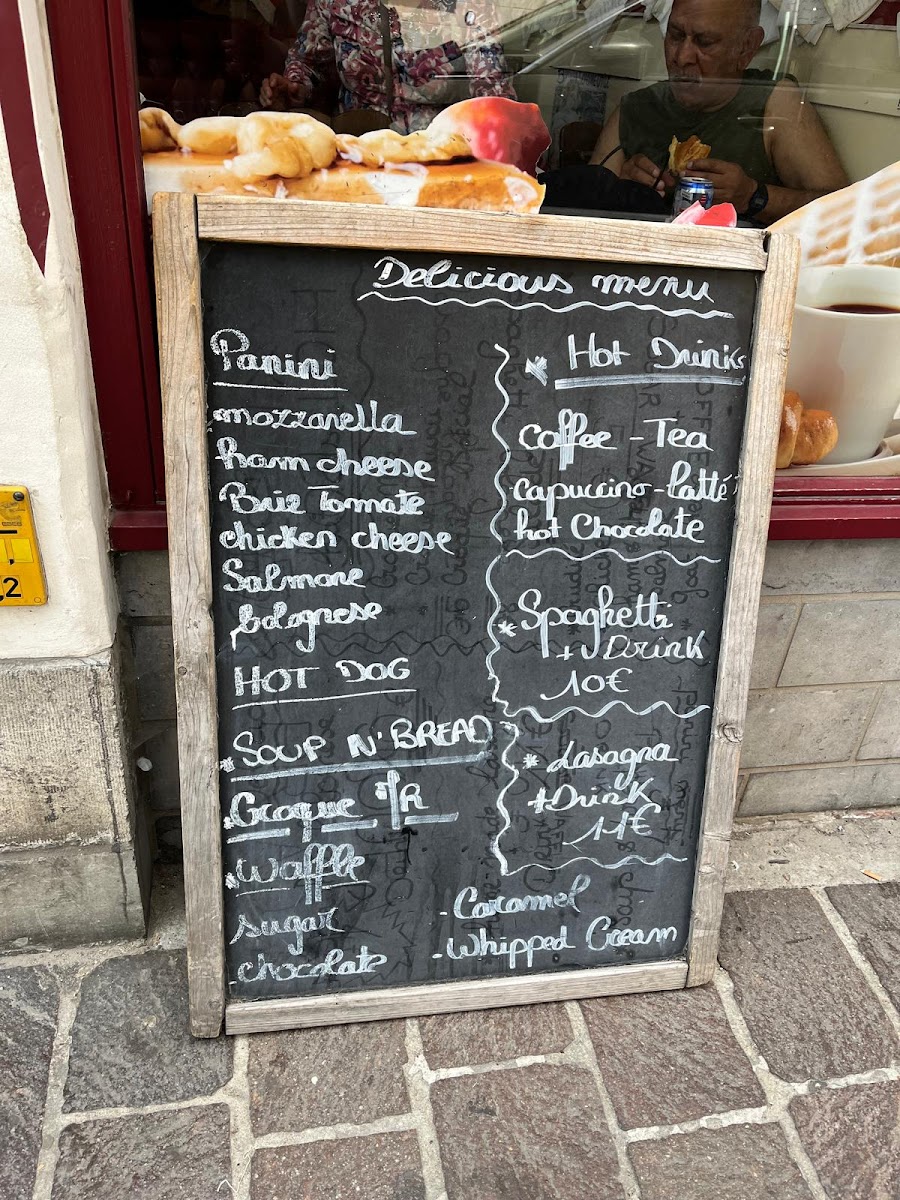 Delicious menu
Panini
mozzarella
ham cheese
Brie Tomate
chicken cheese
Salmone
bolognese
HOT DOG
* SOUP N' BREAD
. Croque Mr
. Waffle
sugar
- chocolate
- Caramel
- Whipped Cream
* Hot Drinks
Coffee - Tea
Capuccino - Latté
hot Chocolate
* Spaghetti
+ Drink
10€
* Lasagna
+ Drink
11€
2